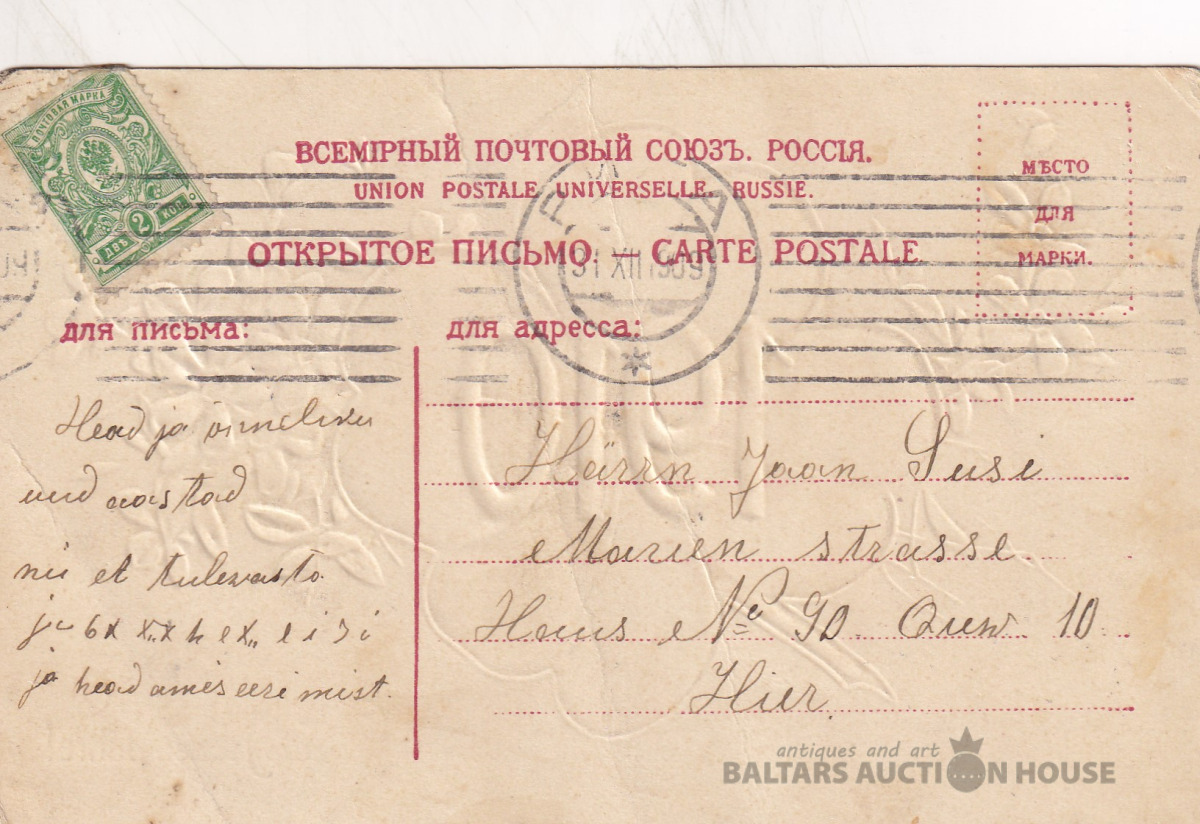 ПОЧТОВАЯ МАРКА
2
ДВѢ КОП
ВСЕМІРНЫЙ ПОЧТОВЫЙ СОЮЗЪ. РОССІЯ.
UNION POSTALE UNIVERSELLE. RUSSIE.
ОТКРЫТОЕ ПИСЬМО. — CARTE POSTALE
МѢСТО
ДЛЯ
МАРКИ.
31 XII 1909
для письма:
для адресса:
Head ja õnneliku
uud aastad
nii et tulevasta
ja
ja head
Härrn Jaan Susi
Marien strasse.
Haus № 90. Quw 10
Hier.
antiques and art
BALTARS AUCTION HOUSE